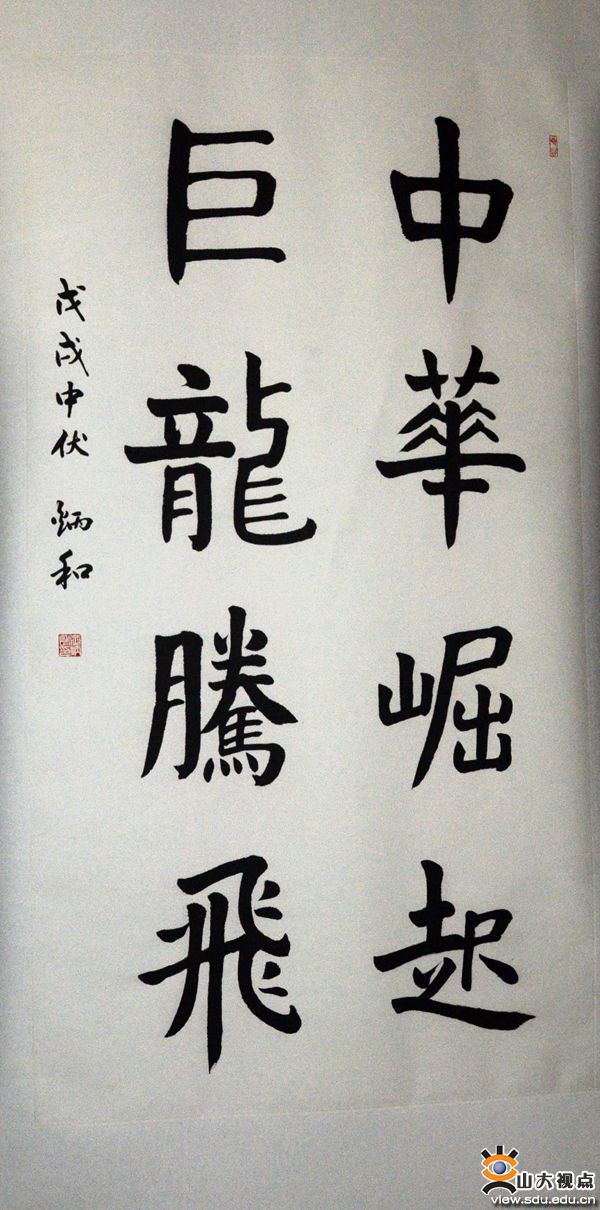 中華崛起
巨龍騰飛
戊戌中伏 炳和
山大视点
view.sdu.edu.cn